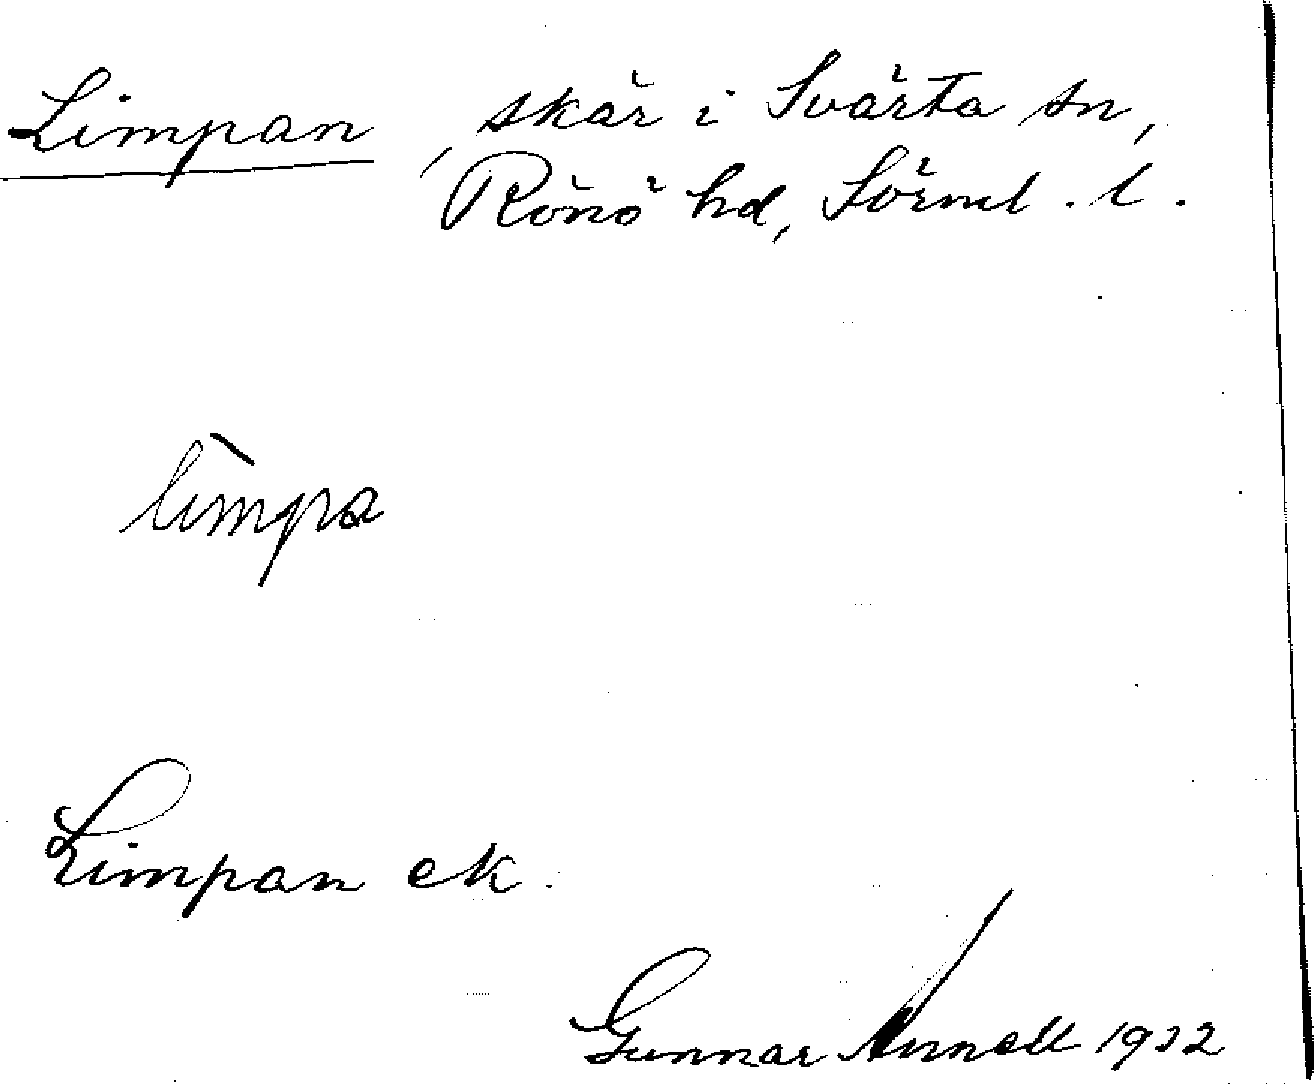 Limpan, skär i Svärta sn,
Rönö hd, Sörml. l.
lìmpa
Limpan ek.
Gunnar Annell 1932